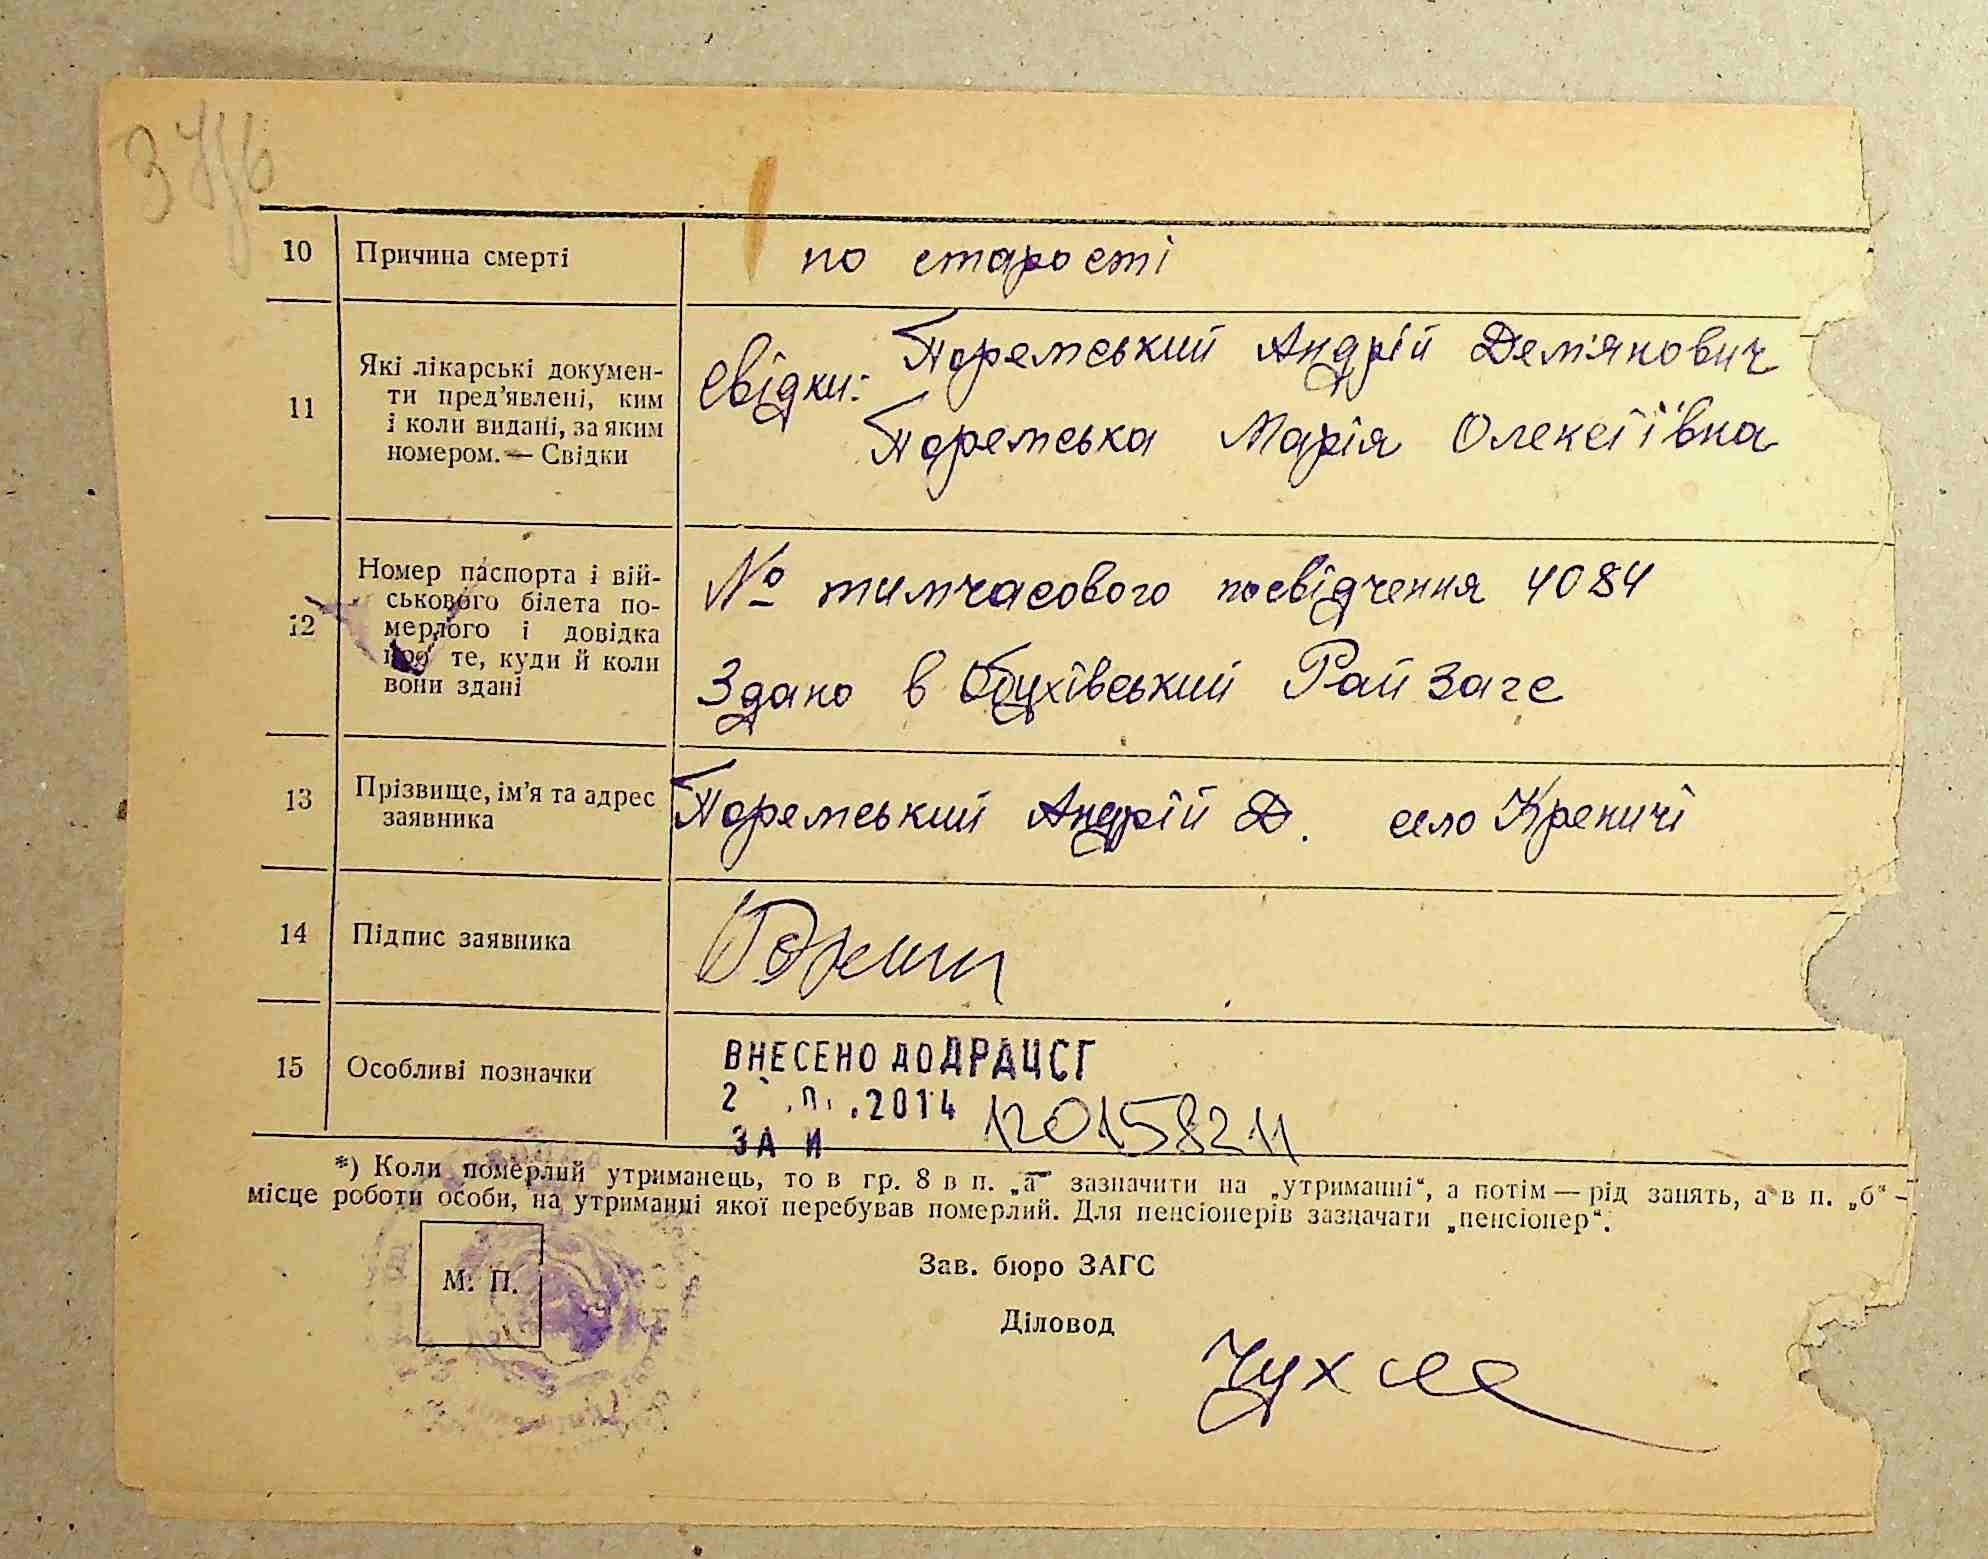 10 Причина смерті по старості
11 Які лікарські докумен-
ти пред'явлені, ким
і коли видані, за яким
номером. — Свідки
Свідки: Поремський Андрій Дем'янович
Поремська Марія Олексіївна
12 Номер паспорта і вій-
ськового білета по-
мерлого і довідка
про те, куди й коли
вони здані
№ тимчасового посвідчення 4084
Здано в Обухівський Рай Загс
13 Прізвище, ім'я та адрес
заявника
Поремський Андрій Д. село Креничі
14 Підпис заявника
15 Особливі позначки
ВНЕСЕНО ДО ДРАЦСГ
2 .2014 120158211
ЗА И
*) Коли померлий утриманець, то в гр. 8 в п. „а" зазначити на „утриманні", а потім — рід занять, а в п. „б" -
місце роботи особи, на утриманні якої перебував померлий. Для пенсіонерів зазначати „пенсіонер".
М. П.
Зав. бюро ЗАГС
Діловод